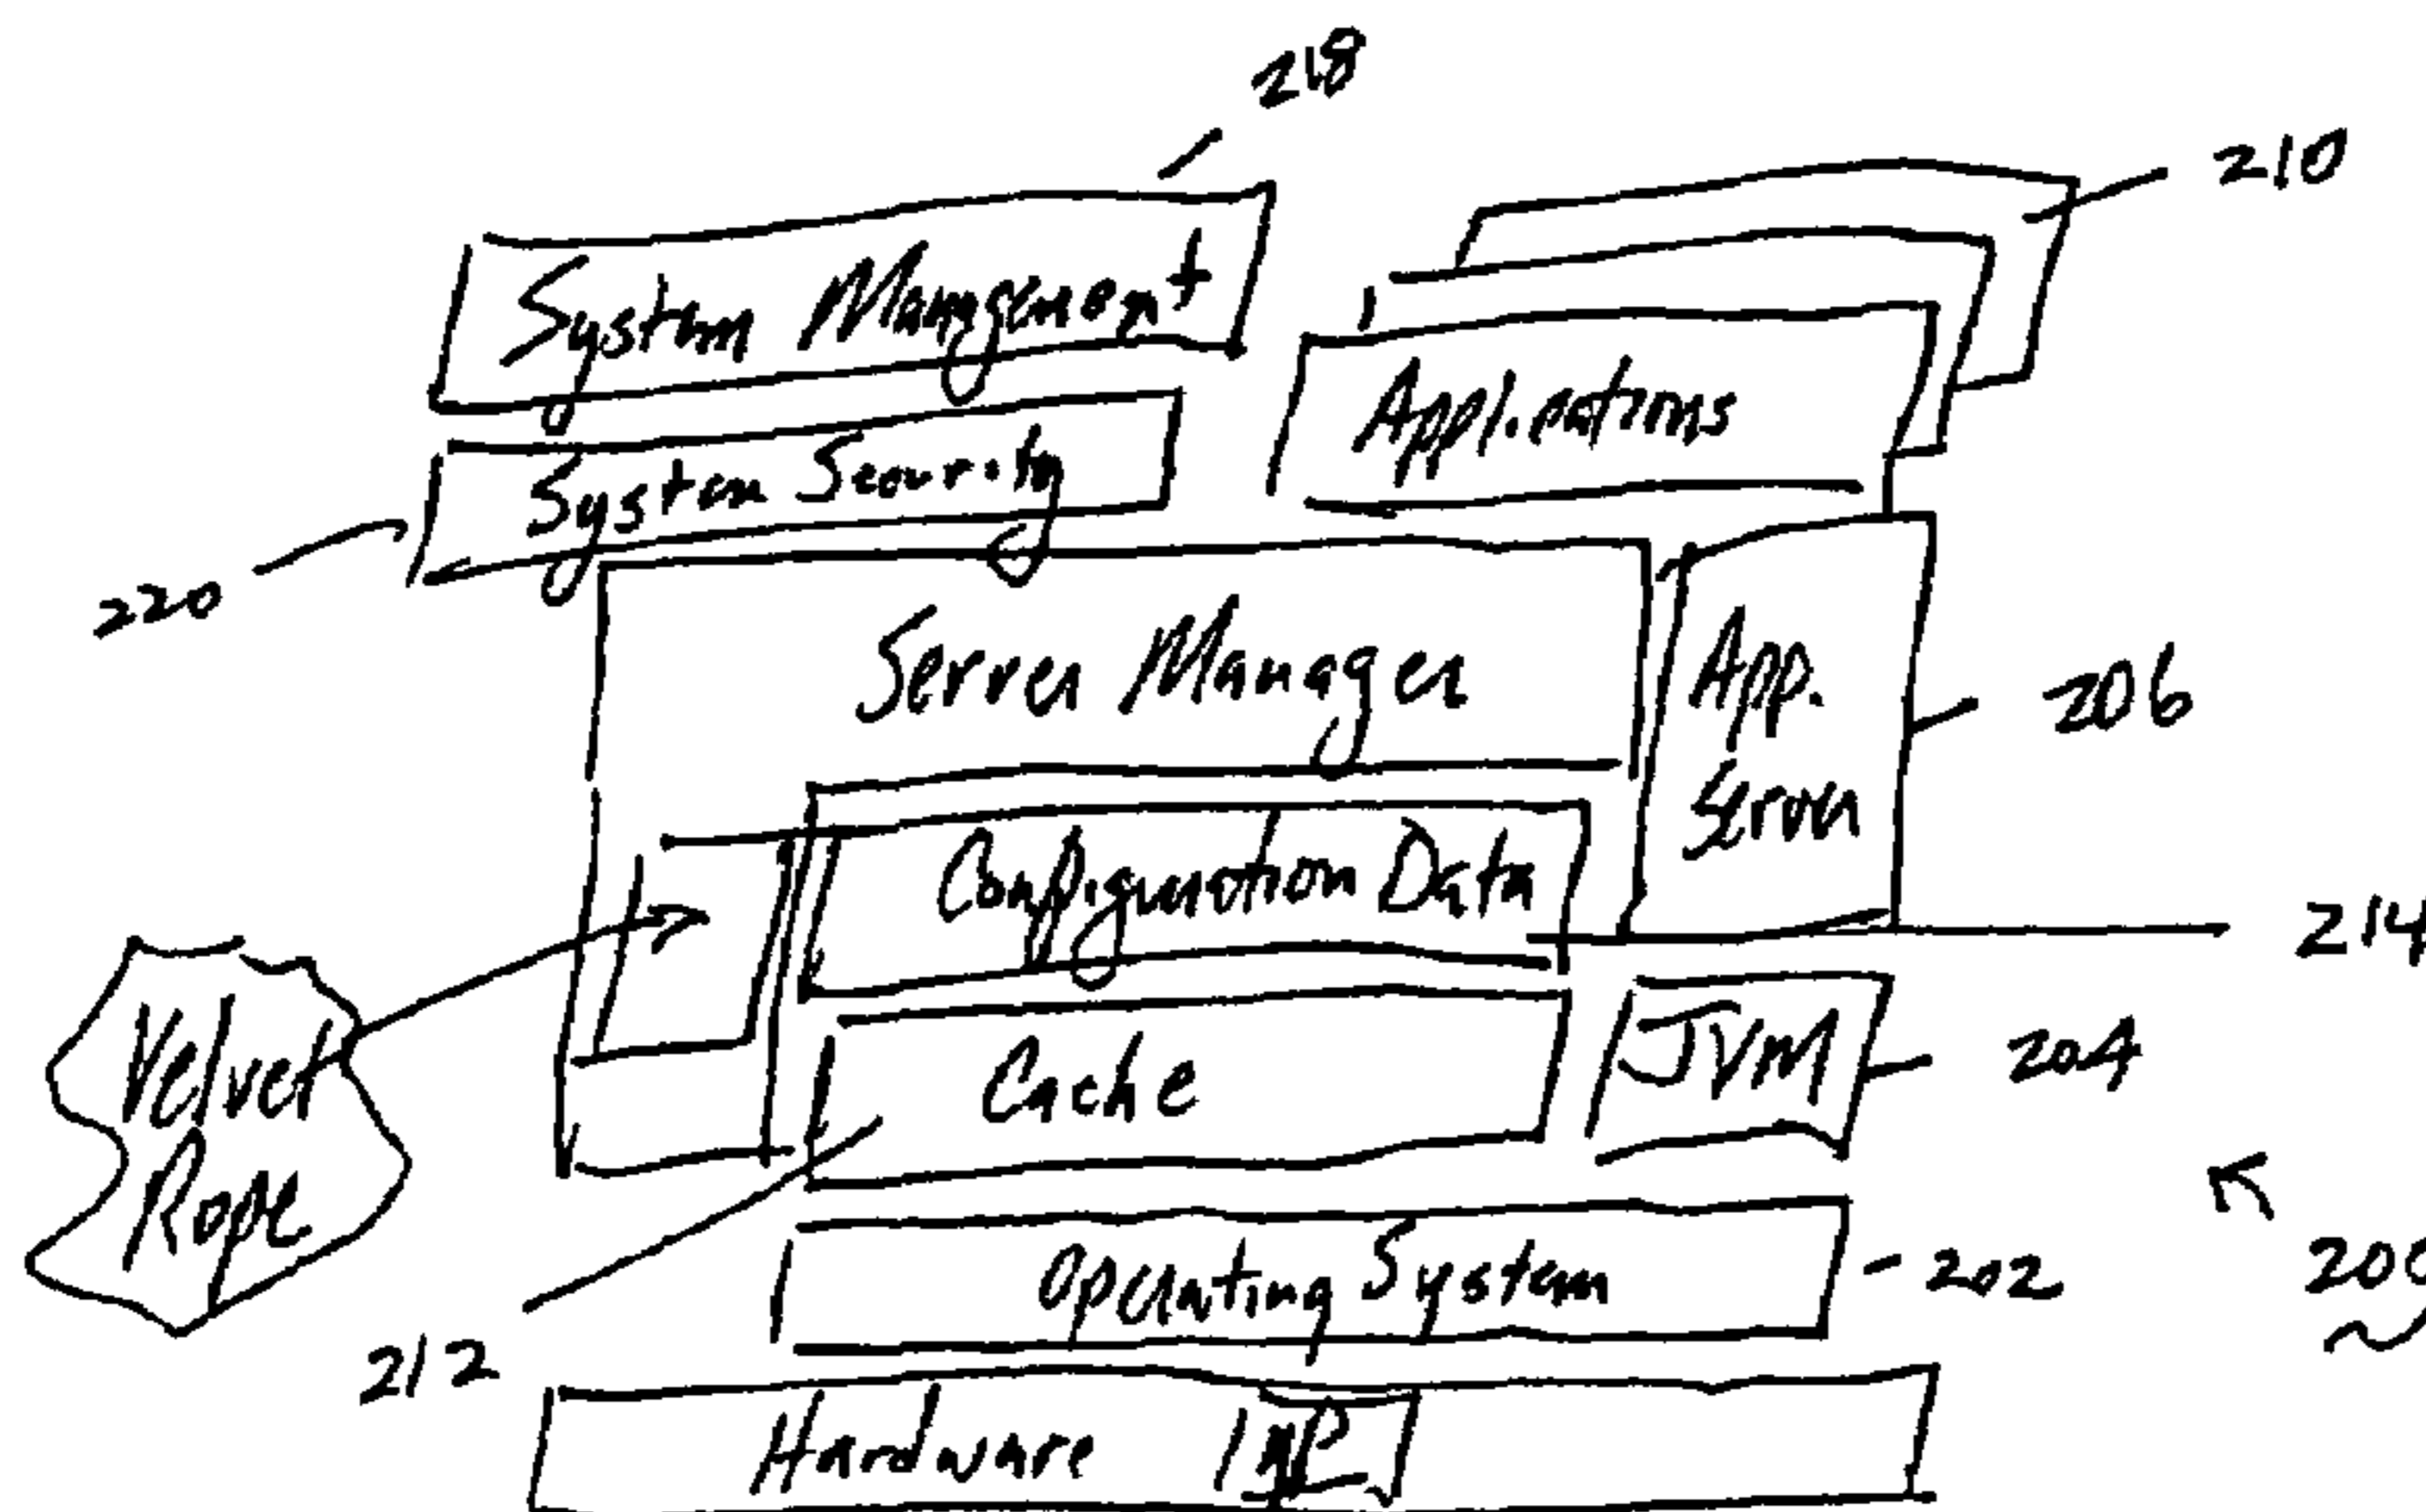 218
210
System Management
Applications
System Security
220
Server Manager
App.
Server
206
Configuration Data
214
Velvet
Rope
Cache
JVM
204
Operating System
202
212
Hardware